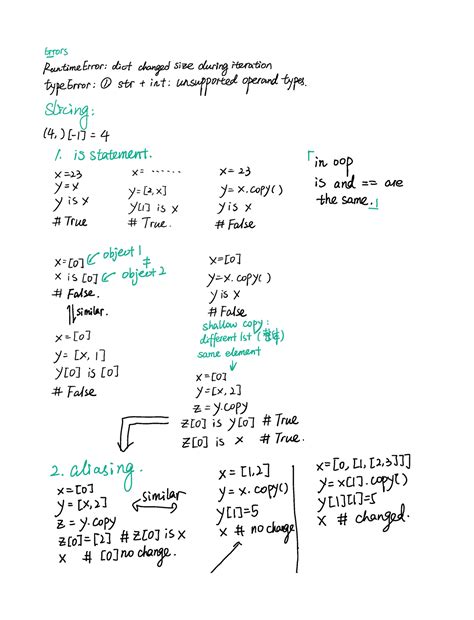 Errors
RuntimeError: dict changed size during iteration
typeError: ① str + int: unsupported operand types.
Slicing:
(4,)[-1] = 4
1. is statement.
x=23
y=x
y is x
# True
x= ······
y=[2,x]
y[1] is x
# True.
x=23
y=x.copy()
y is x
# False
「in oop
is and == are
the same.」
x=[0] object 1
≠
x is [0] object 2
# False.
similar.
x=[0]
y=[x, 1]
y[0] is [0]
# False
x=[0]
y=x.copy()
y is x
# False
shallow copy:
different lst
same element
x=[0]
y=[x,2]
z=y.copy
z[0] is y[0] # True
z[0] is x # True.
2. aliasing.
x=[0]
y=[x,2]
z = y.copy
z[0]=[2] # z[0] is x
x # [0] no change.
similar
x = [1,2]
y = x.copy()
y[1]=5
x # no change
x=[0,[1,[2,3]]]
y=x[1].copy()
y[1][1]=5
x # changed.